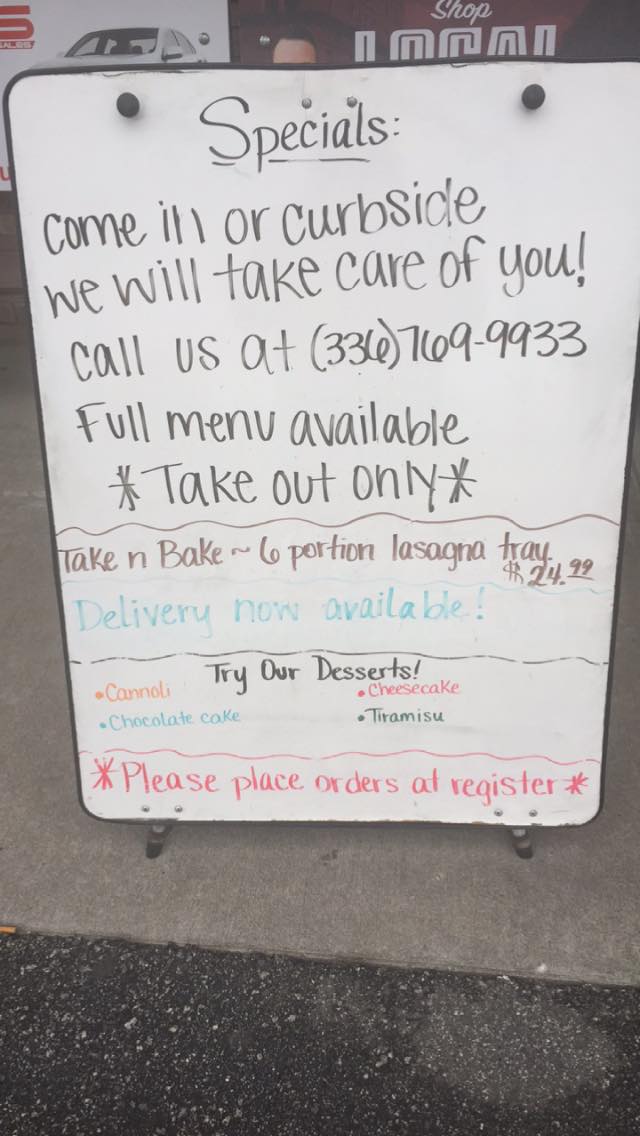 Shop
LOCAL
S
SALES
Specials:
Come in or curbside
we will take care of you!
Call us at (336)769-9933
Full menu available
*Take out only*
Take n Bake ~ 6 portion lasagna tray
$24.99
Delivery now available!
Try Our Desserts!
•Cannoli
•Cheesecake
•Chocolate cake
•Tiramisu
*Please place orders at register*